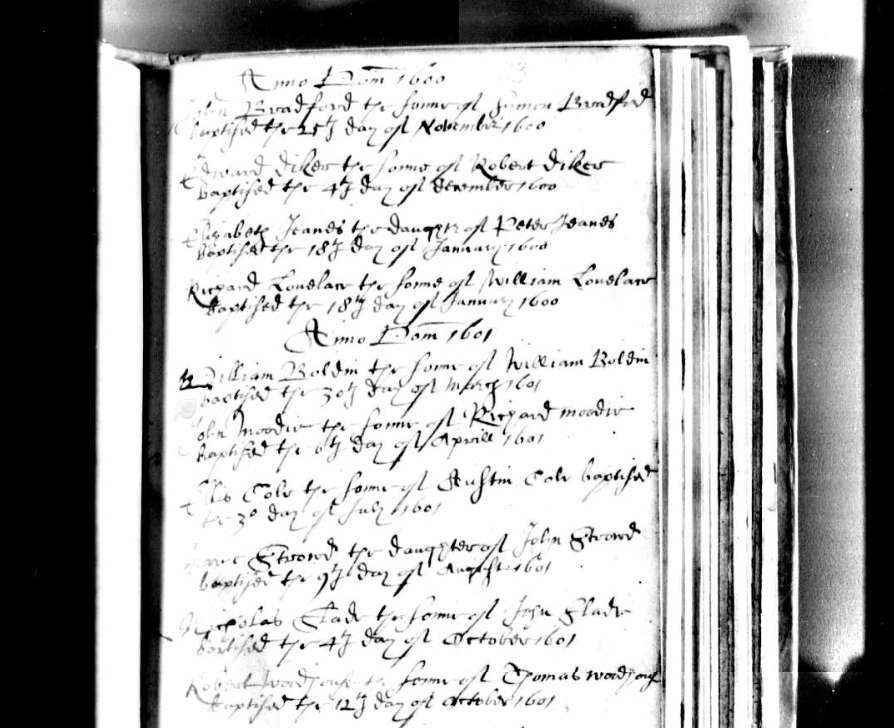 Anno Dom 1600
John Bradford the sonne of Symon Bradford
baptised the 25th day of November 1600
Edward Diker the sonne of Robert Diker
baptised the 4th day of december 1600
Elizabeth Jeanes the daughtr of Peter Jeanes
baptised the 18th day of January 1600
Richard Lovelace the sonne of William Lovelace
baptised the 18th day of January 1600
Anno Dom 1601
William Boldin the sonne of William Boldin
baptised the 30th day of March 1601
John Moodie the sonne of Richard moodie
baptised the 6th day of Aprill 1601
Cole the sonne of Austin Cole baptised
the 30 day of July 1601
Strowd the daughter of John Strowd
baptised the 9th day of August 1601
Nicholas Slade the sonne of John Slade
baptised the 4th day of October 1601
Robert the sonne of Thomas
baptised the 12th day of October 1601